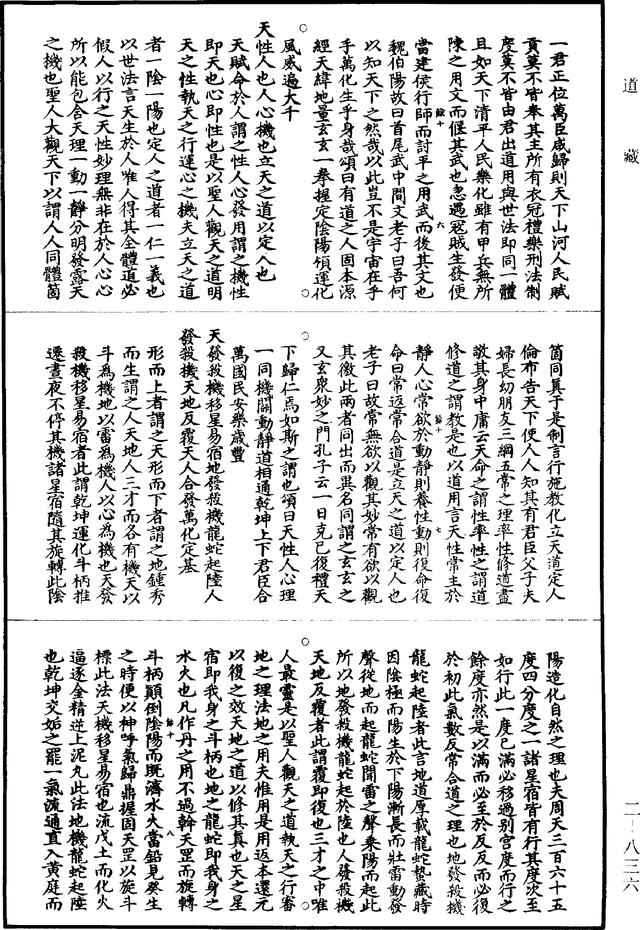 道藏
一君正位萬臣咸歸則天下山河人民賦
貢莫不皆奉其主所有衣冠禮樂刑法制
度莫不皆由君出道用與世法即同一體
且如天下清平人民樂化雖有甲兵無所
陳之用文而偃其武也忽遇寇賊生發便
餘十 六
當建侯行師而討平之用武而後其文也
魏伯陽故曰首尾武中間文老子曰吾何
以知天下之然哉以此豈不是宇宙在乎
手萬化生乎身哉頌曰有道之人固本源
經天緯地量玄玄一拳握定陰陽領運化
風威遍大千
天性人也人心機也立天之道以定人也
天賦命於人謂之性人心發用謂之機性
即天也心即性也是以聖人觀天之道明
天之性執天之行運心之機夫立天之道
者一陰一陽也定人之道者一仁一義也
以世法言天生於人唯人得其全體道必
假人以行之天性妙理無非在於人心心
所以能包含天理一動一靜分明發露天
之機也聖人大觀天下以謂人人同體箇
箇同真于是制言行施教化立天道定人
倫布告天下使人人知其有君臣父子夫
婦長幼朋友三綱五常之理率性修道盡
敬其身中庸云天命之謂性率性之謂道
修道之謂教是也以道用言天性常主於
餘十 七
靜人心常欲於動靜則養性動則復命復
命曰常返常合道是立天之道以定人也
老子曰故常無欲以觀其妙常有欲以觀
其徼此兩者同出而異名同謂之玄玄之
又玄衆妙之門孔子云一日克己復禮天
下歸仁焉如斯之謂也頌曰天性人心理
一同機關動靜道相通乾坤上下君臣合
萬國民安樂歲豐
天發殺機移星易宿地發殺機龍蛇起陸人
發殺機天地反覆天人合發萬化定基
形而上者謂之天形而下者謂之地鍾秀
而生謂之人天地人三才而各有機天以
斗為機地以雷為機人以心為機也天發
殺機移星易宿者此謂乾坤運化斗柄推
遷晝夜不停其機諸星宿隨其旋轉此陰
陽造化自然之理也夫周天三百六十五
度四分度之一諸星宿皆有行其度次至
如行此一度已滿必移過別宮度而行之
餘度亦然是以滿而必至於反反而必復
於初此氣數反常合道之理也地發殺機
龍蛇起陸者此言地道厚載龍蛇蟄藏時
因陰極而陽生於下陽漸長而壯雷動發
聲從地而起龍蛇聞雷之聲乘陽而起此
所以地發殺機龍蛇起於陸也人發殺機
天地反覆者此謂覆即復也三才之中唯
人最靈是以聖人觀天之道執天之行審
地之理法地之用夫惟用是用返本還元
以復之效天地之道以修其真也天之星
宿即我身之斗柄也地之龍蛇即我身之
水火也凡作丹之用不過斡天罡而旋轉
餘十 八
斗柄顛倒陰陽而既濟水火當鉛見癸生
之時便以神呼氣歸鼎握固天罡以旋斗
標此法天機移星易宿也流戊土而化火
逼逐金精逆上泥丸此法地機龍蛇起陸
也乾坤交姤之罷一氣流通直入黃庭而
二-八三六